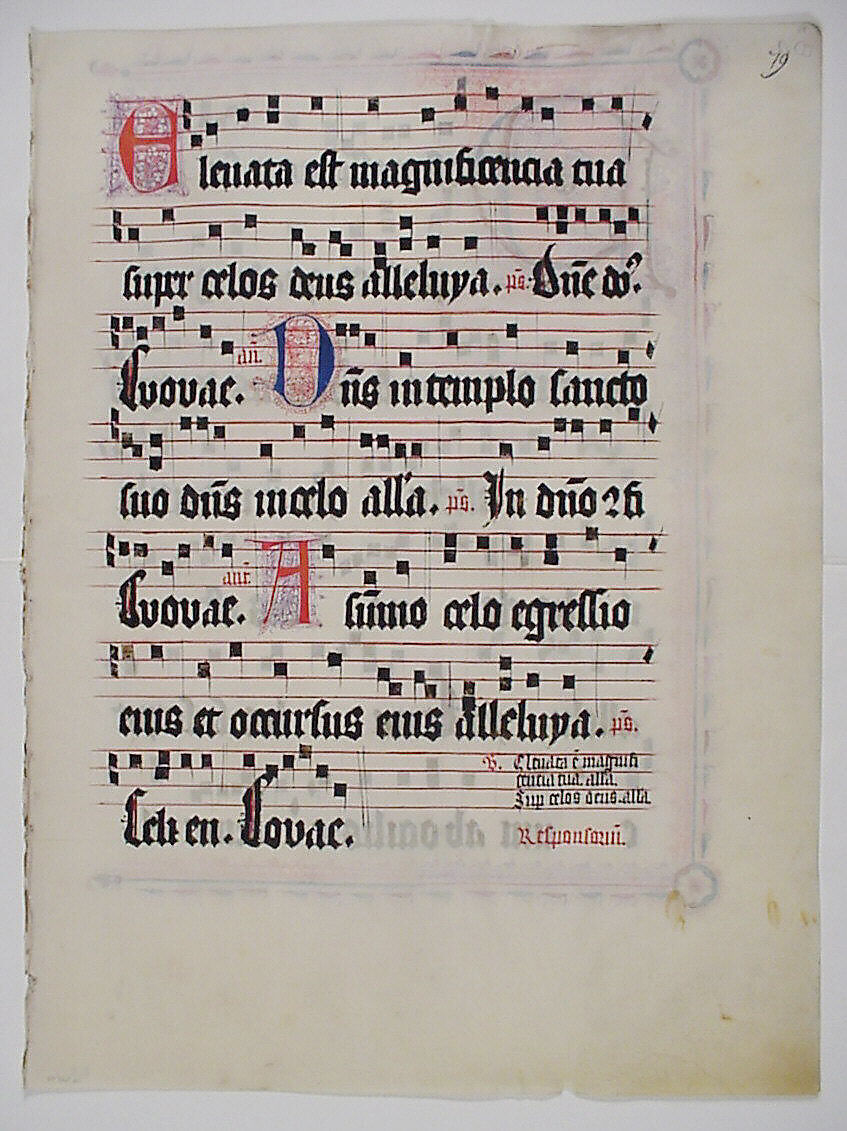 79
Eleuata est magnificencia tua
super celos deus alleluya. ps. Dñe dõ.
Euouae. an. Dñs in templo sancto
suo dñs in celo all'a. ps. In dño 9fi
Euouae. añt. A sũmo celo egressio
eius et occursus eius alleluya. ps.
Celi en. Euouae. V. Eleuata ẽ magnifi
cencia tua. alla.
Sup celos deus. alla
Responsoriũ.